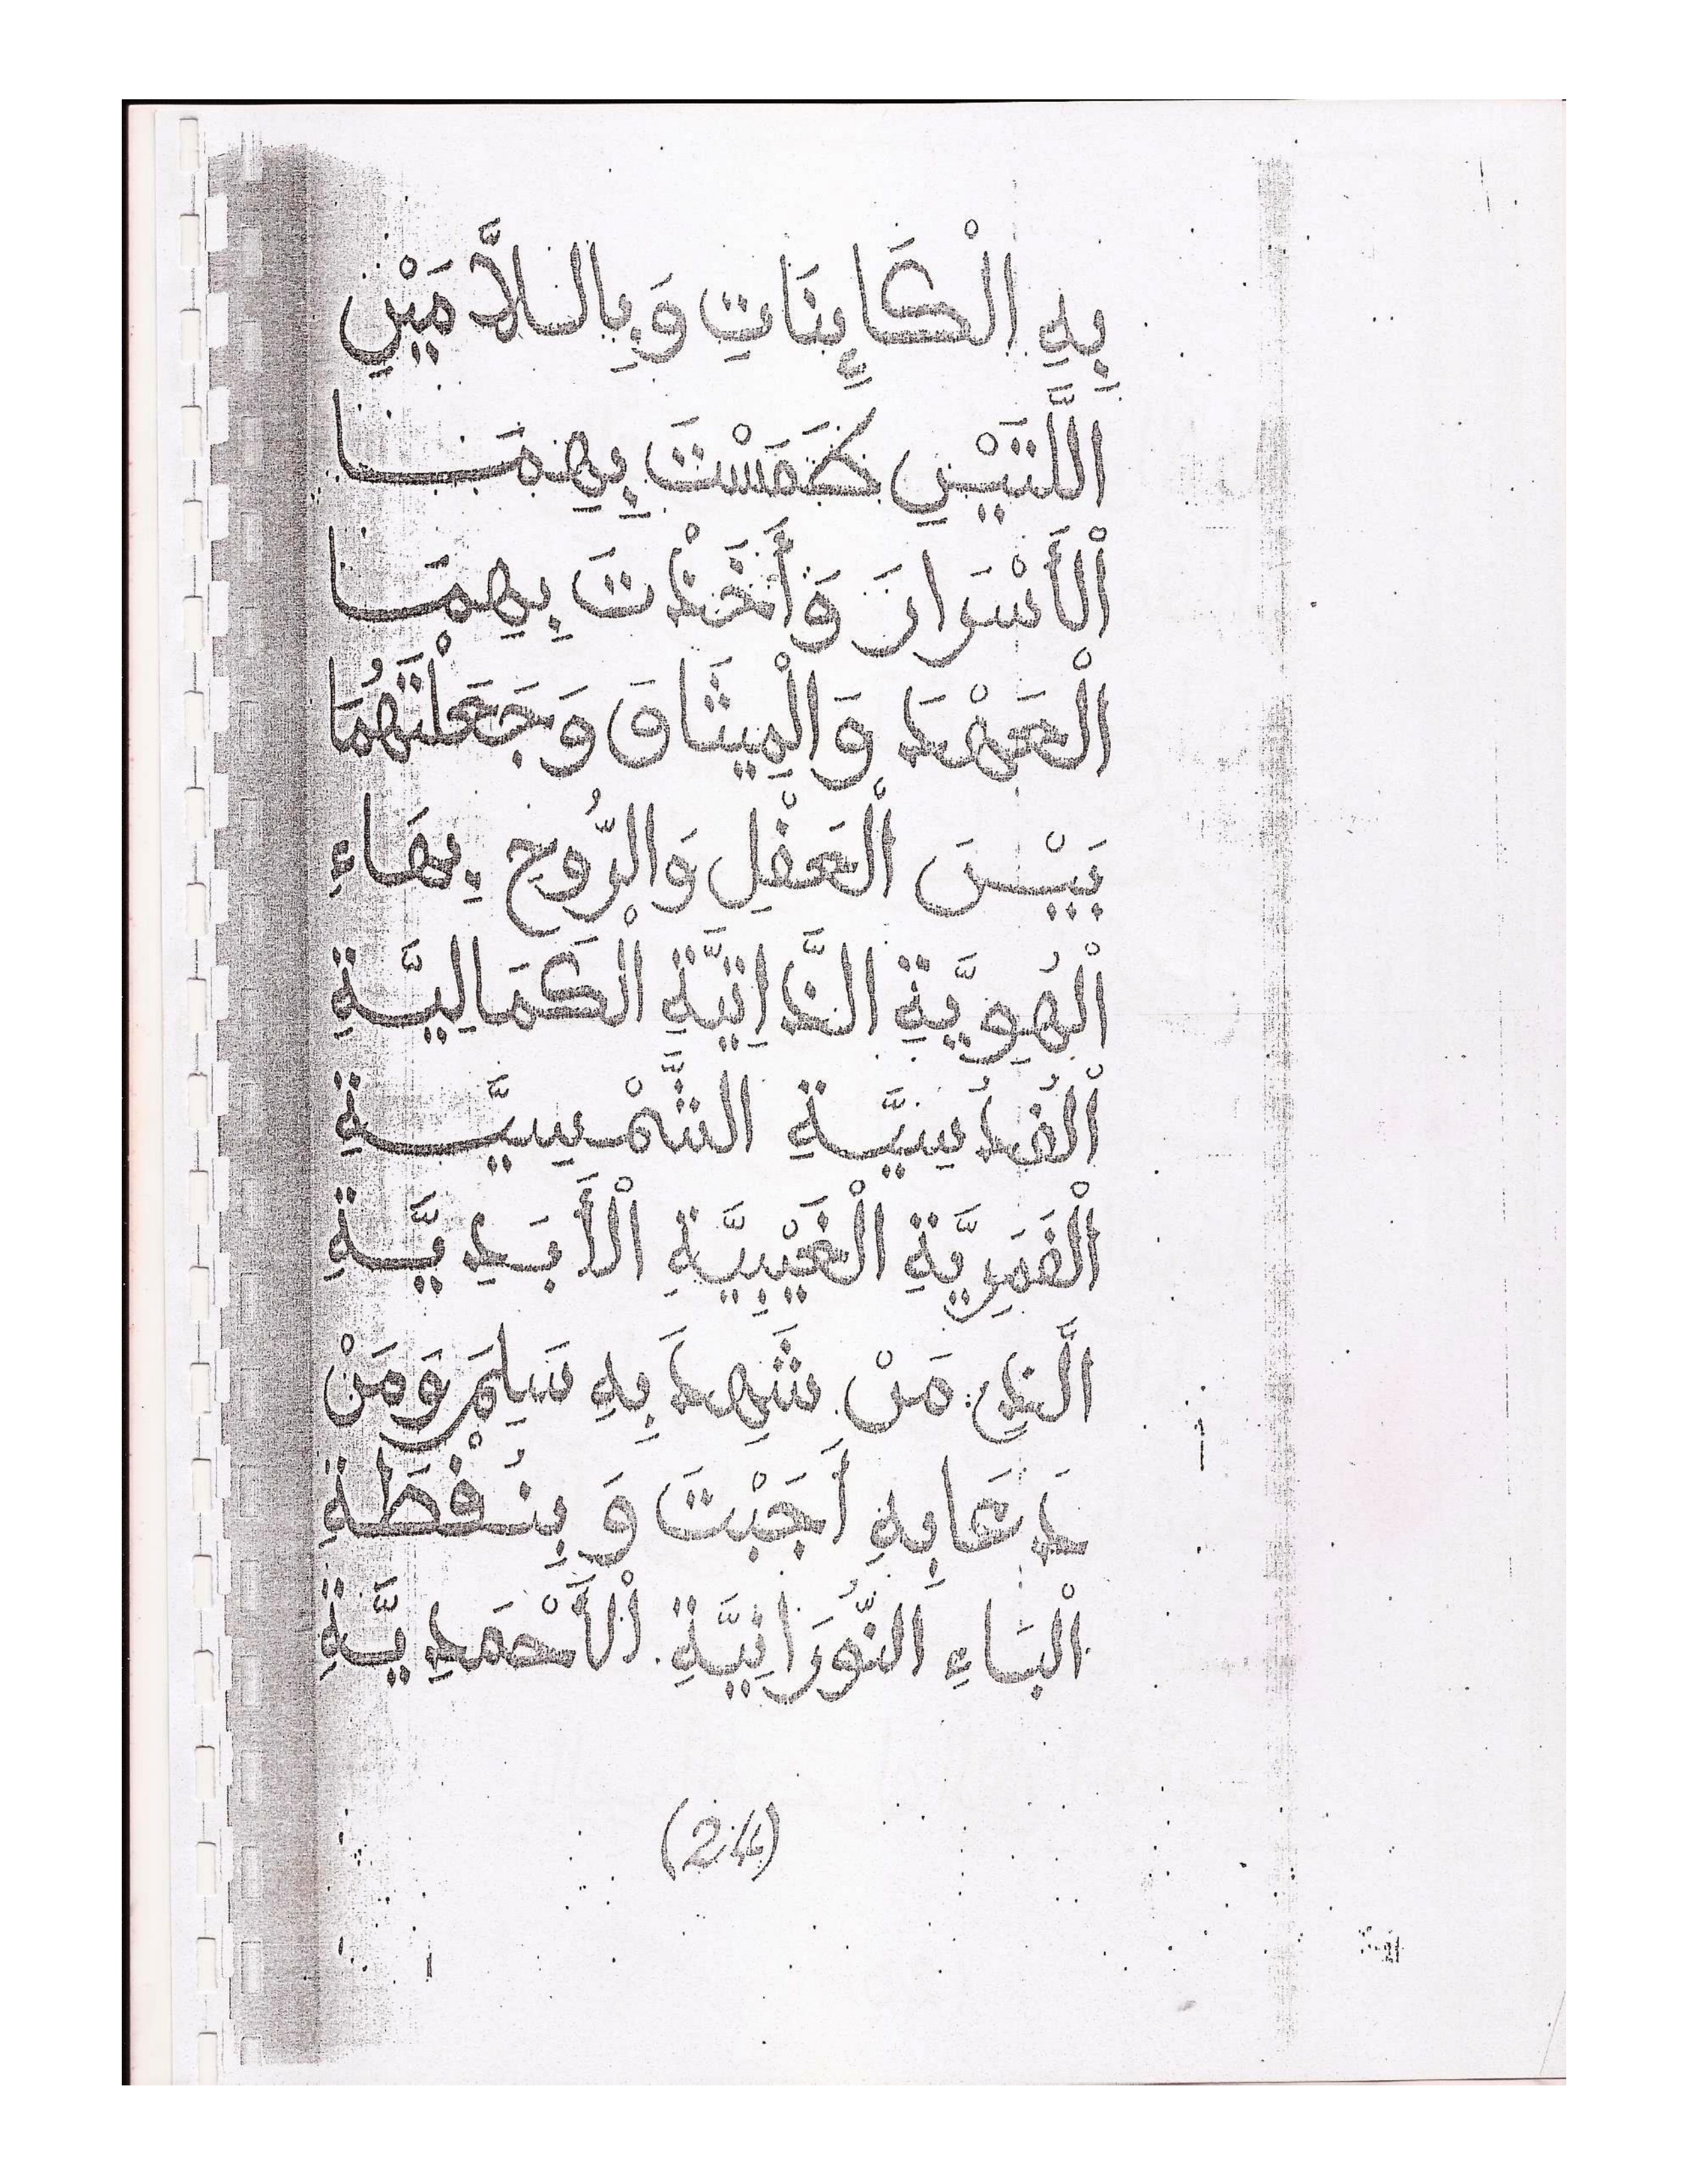 بِهِ الْكَائِنَاتِ وَبِاللَّامَيْنِ
اللَّتَيْنِ طَمَسْتَ بِهِمَا
اْلأَسْرَارَ وَأَخَذْتَ بِهِمَا
الْعَهْدَ وَالْمِيثَاقَ وَجَعَلْتَهُمَا
بَيْنَ الْعَقْلِ وَالرُّوحِ بِهَاءِ
الْهُوِيَّةِ الذَّاتِيَّةِ الْكَمَالِيَّةِ
الْقُدْسِيَّةِ الشَّمْسِيَّةِ
الْقَمَرِيَّةِ الْغَيْبِيَّةِ الْأَبَدِيَّةِ
الَّذِي مَنْ شَهِدَ بِهِ سَلِمَ وَمَنْ
دَعَا بِهِ أَجَبْتَ وَبِنُقْطَةِ
الْبَاءِ النُّورَانِيَّةِ الْأَحْمَدِيَّةِ
(24)